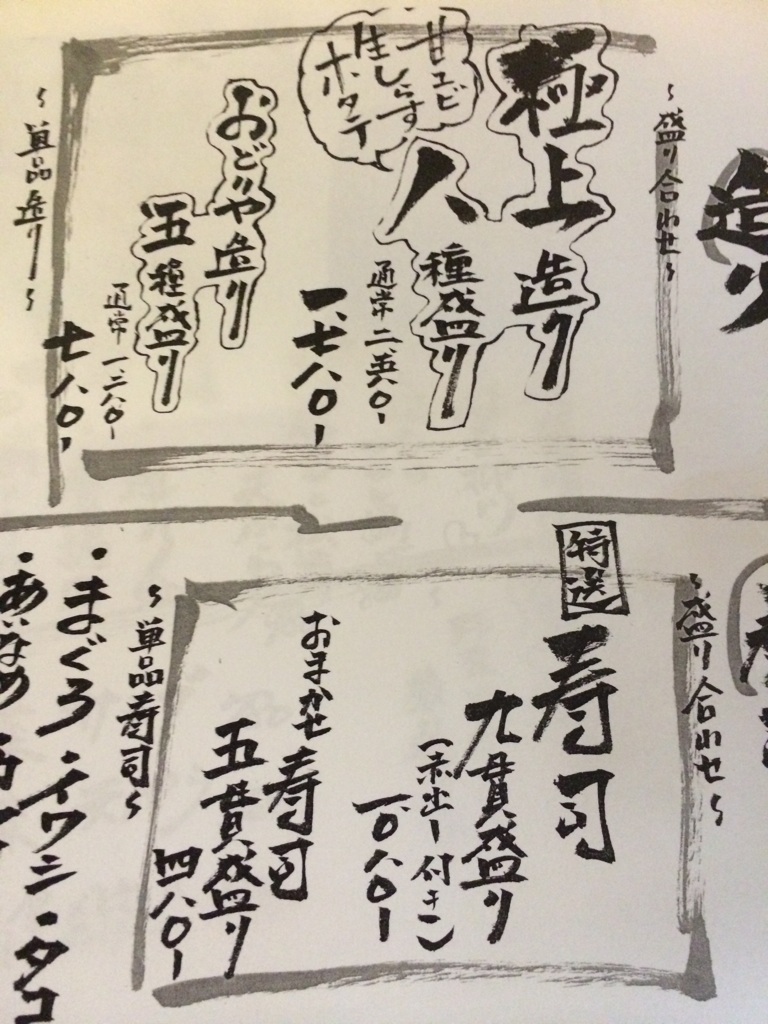 造り
〜盛り合わせ〜
極上造り
八種盛り
甘エビ
生しらす
ホタテ
通常二、英八〇-
一、七八〇-
おどりや造り
五種盛り
通常一、二八〇-
七八〇-
〜単品造り〜
〜盛り合わせ〜
特選
寿司
九貫盛り
(赤出し付き)
一、〇八〇-
おまかせ
寿司
五貫盛り
四八〇-
〜単品寿司〜
・まぐろ・イワシ・タコ
・あいなめ